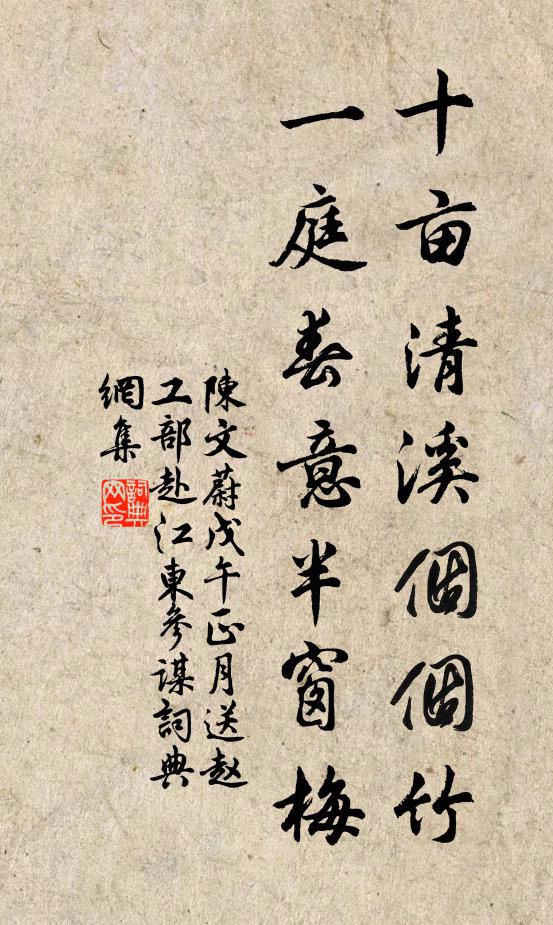 十亩清溪個個竹
一庭春意半窗梅
陳文蔚戊午正月送赵
工部赴江東參謀詞典
網集
詞典
网印